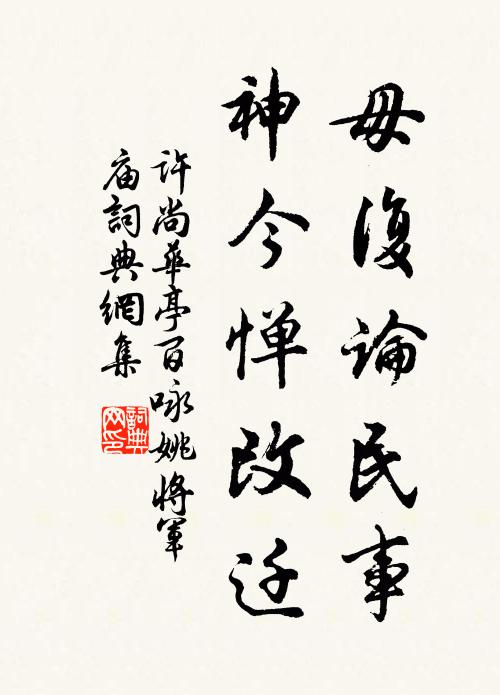 毋復論民事
神今惮改迁
許尚華亭百咏姚將軍
庙詞典網集
詞典網印